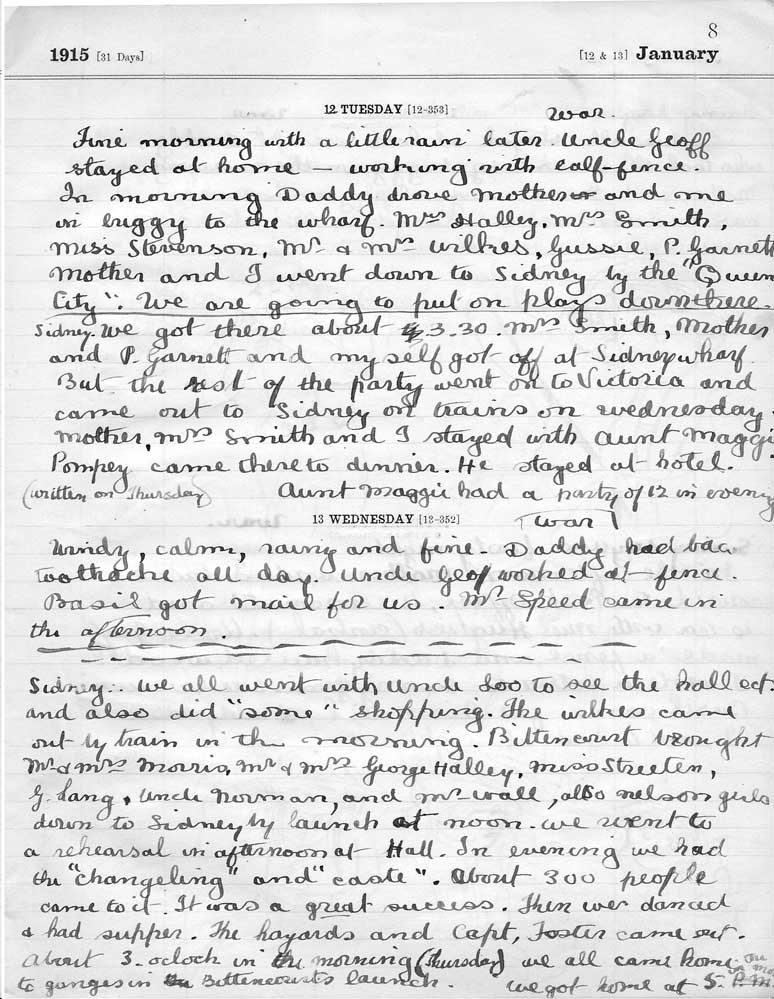 8
1915 [31 Days] [12 & 13] January
12 TUESDAY [12-353] war.
Fine morning with a little rain later. Uncle Geoff
stayed at home — working with calf-fence.
In morning Daddy drove Mother and me
in buggy to the wharf. Mrs Halley, Mrs Smith,
Miss Stevenson, Mr & Mrs Wilkes, Gussie, P. Garnett
Mother and I went down to Sidney by the "Queen
City". We are going to put on plays down there.
Sidney. We got there about 3.30. Mrs Smith, Mother
and P. Garnett and my self got off at Sidney wharf.
But the rest of the party went on to Victoria and
came out to Sidney on trains on wednesday.
Mother, Mrs Smith and I stayed with Aunt Maggi
Pompey came there to dinner. He stayed at hotel.
(written on Thursday) Aunt Maggie had a party of 12 in evening
13 WEDNESDAY [13-352] war
Windy, calm, rainy and fine. Daddy had bad
toothache all day. Uncle Geof worked at fence.
Basil got mail for us. Mr Speed came in
the afternoon.
Sidney.. We all went with Uncle Loo to see the hall ect.
and also did "some" shopping. The wilkes came
out by train in the morning. Bittencourt brought
Mr & Mrs Morris, Mr & Mrs George Halley, Miss Streeten,
G. Lang, Uncle Norman, and Mr Wall, also nelson girls
down to Sidney by launch at noon. We went to
a rehearsal in afternoon at Hall. In evening we had
the "changeling" and "caste". About 300 people
came to it. It was a great success. Then we danced
& had supper. The hayards and Capt, Foster came out.
About 3. oclock in the morning (Thursday) we all came home
to ganges in Bittencourts launch. We got home at 5.